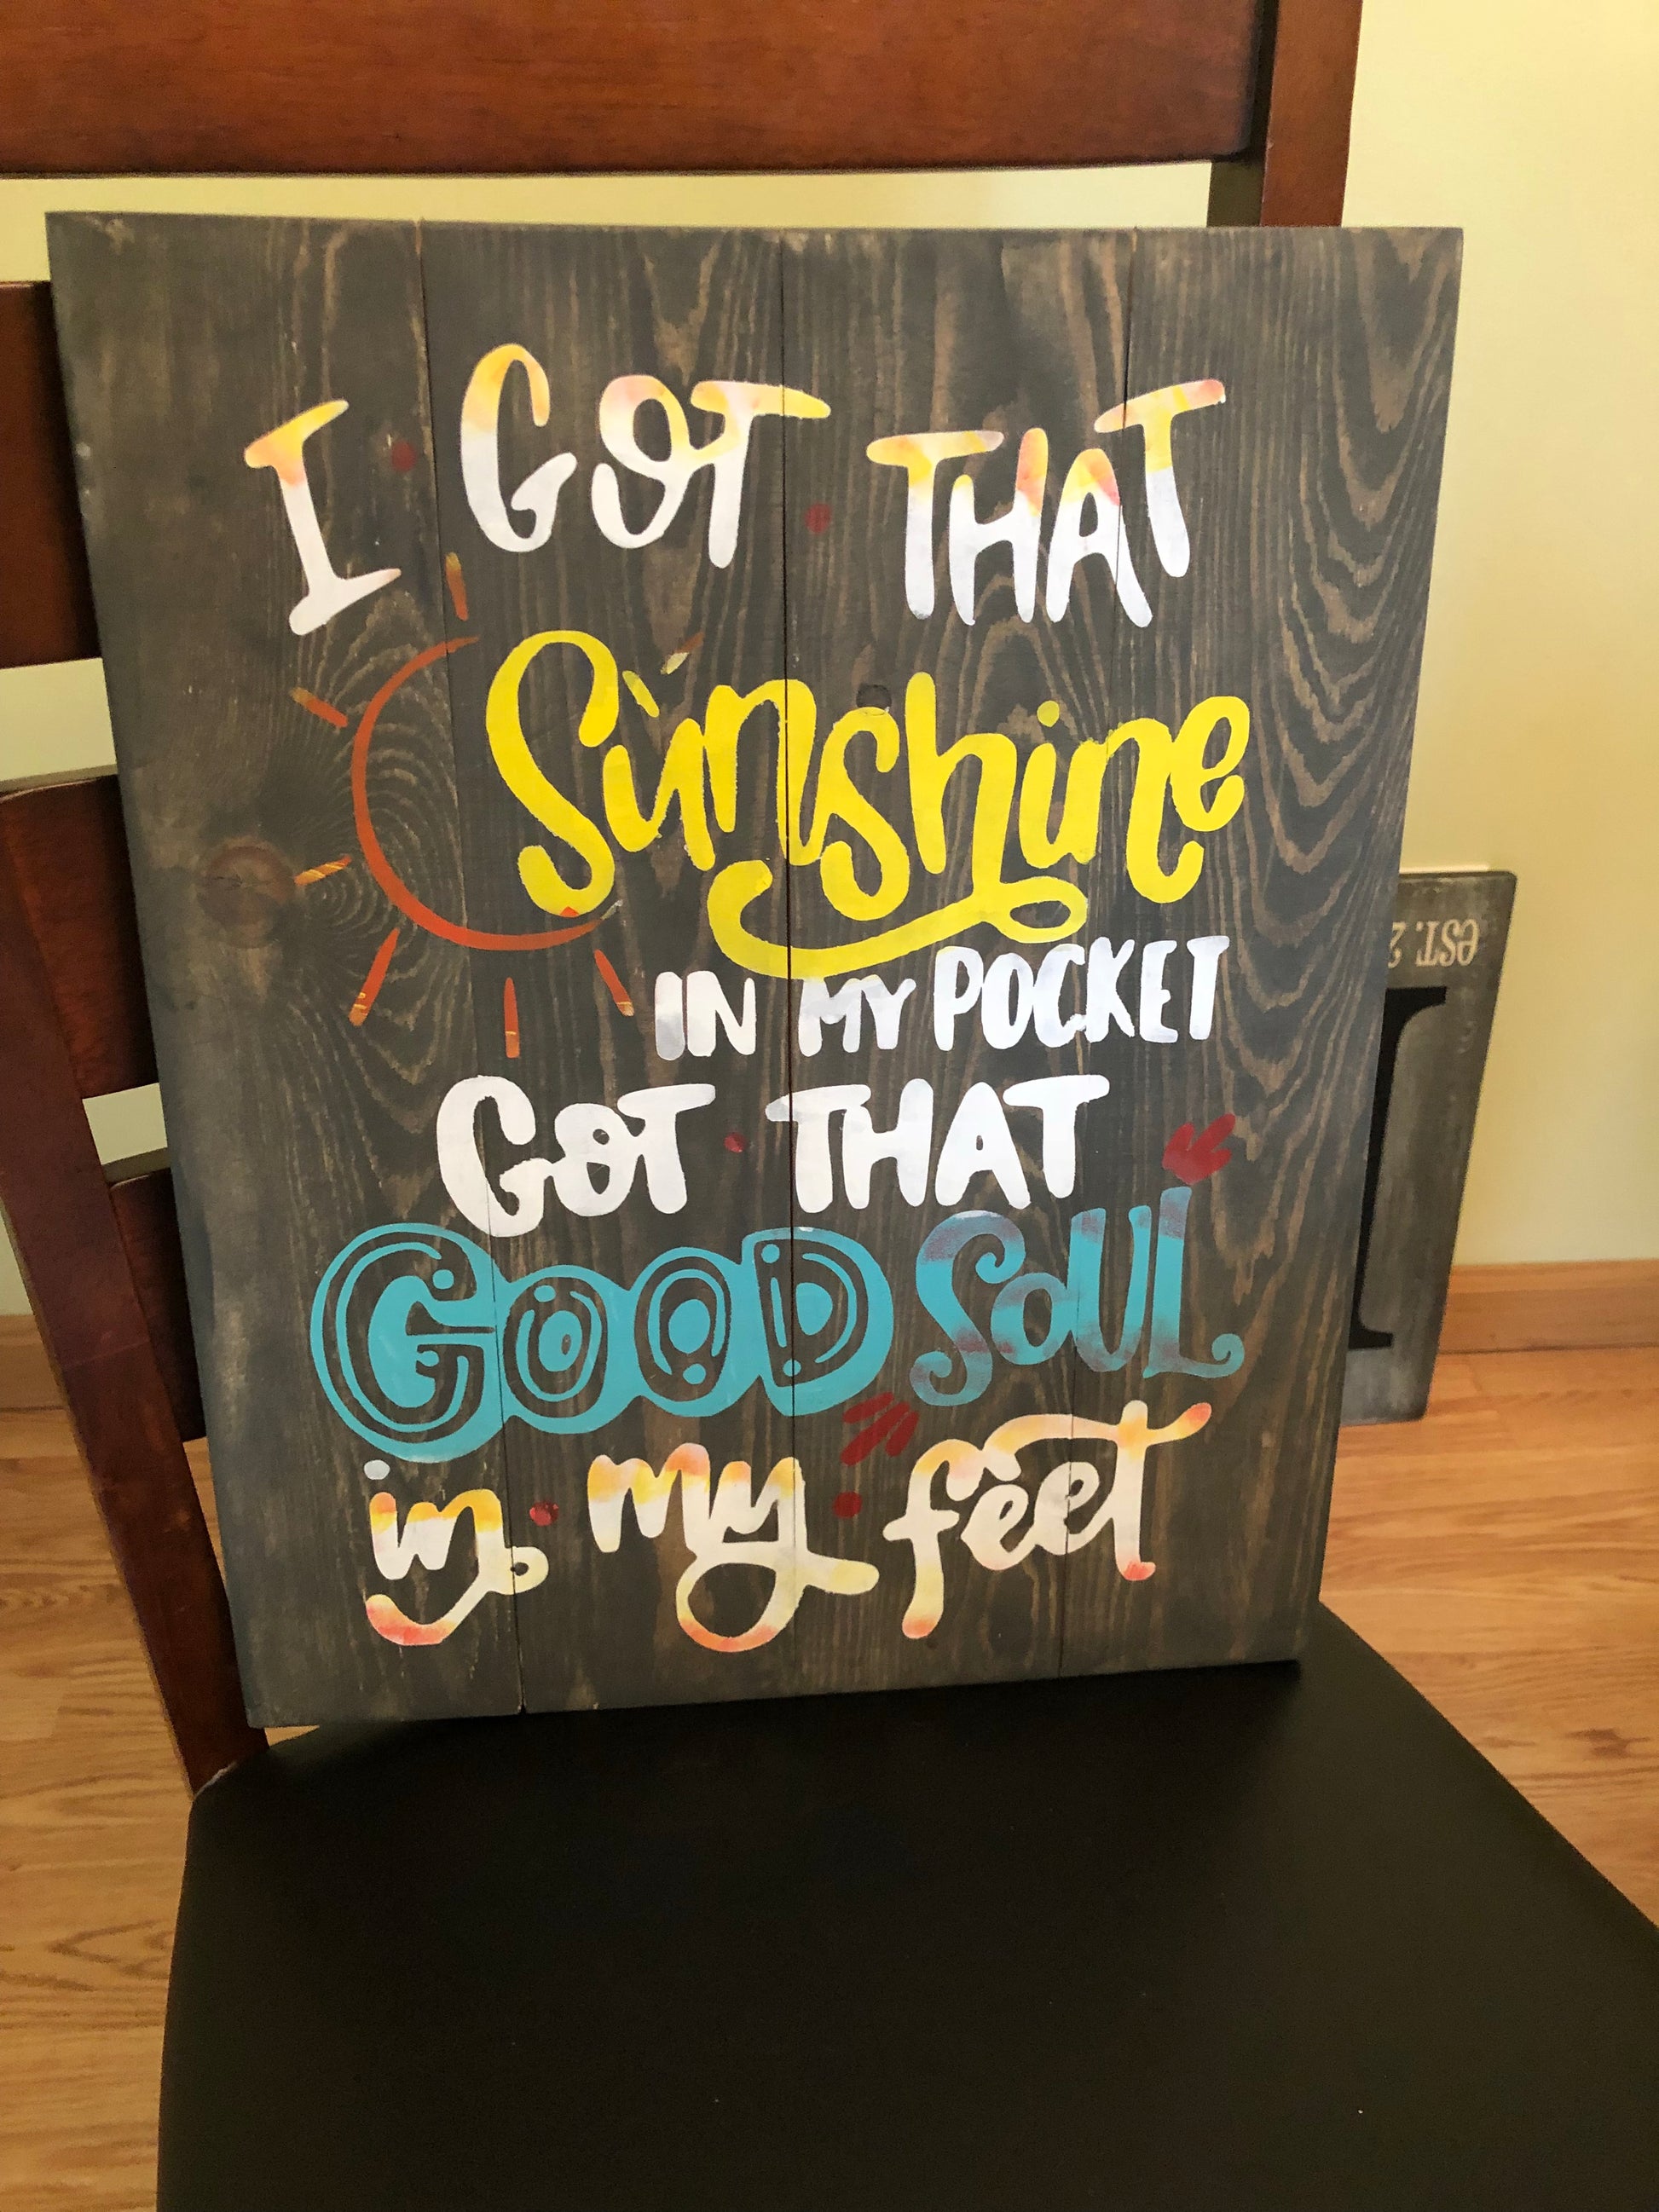 I GOT THAT
Sunshine
IN MY POCKET
GOT THAT
GOOD SOUL
in my feet
EST. 2
I